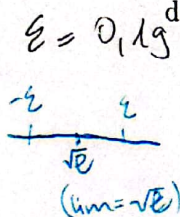 ε = 0,1g^d
-ε ε
√e
(lim = √e)